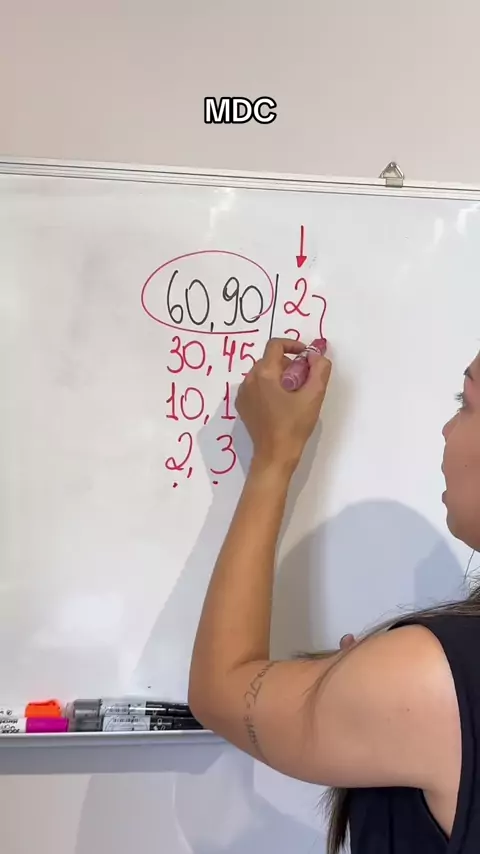 MDC
60,90 2
30,45
10,1
2,3